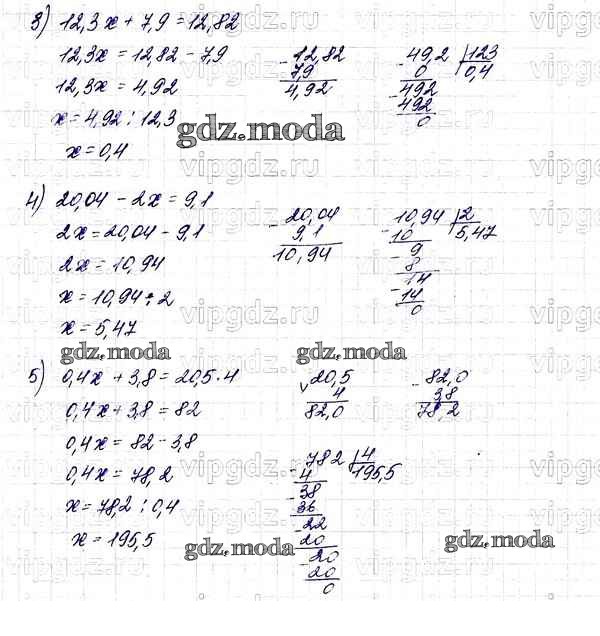 3) 12,3x + 7,9 = 12,82
12,3x = 12,82 - 7,9
12,3x = 4,92
x = 4,92 : 12,3
x = 0,4
- 12,82
7,9
4,92
- 49,2 | 123
0 | 0,4
- 492
492
0
gdz.moda
4) 20,04 - 2x = 9,1
2x = 20,04 - 9,1
2x = 10,94
x = 10,94 : 2
x = 5,47
- 20,04
9,1
10,94
- 10,94 | 2
10 | 5,47
- 9
8
- 14
14
0
gdz.moda
gdz.moda
5) 0,4x + 3,8 = 20,5 · 4
0,4x + 3,8 = 82
0,4x = 82 - 3,8
0,4x = 78,2
x = 78,2 : 0,4
x = 195,5
× 20,5
4
82,0
- 82,0
3,8
78,2
- 782 | 4
4 | 195,5
- 38
36
- 22
20
- 20
20
0
gdz.moda
gdz.moda
vipgdz.ru